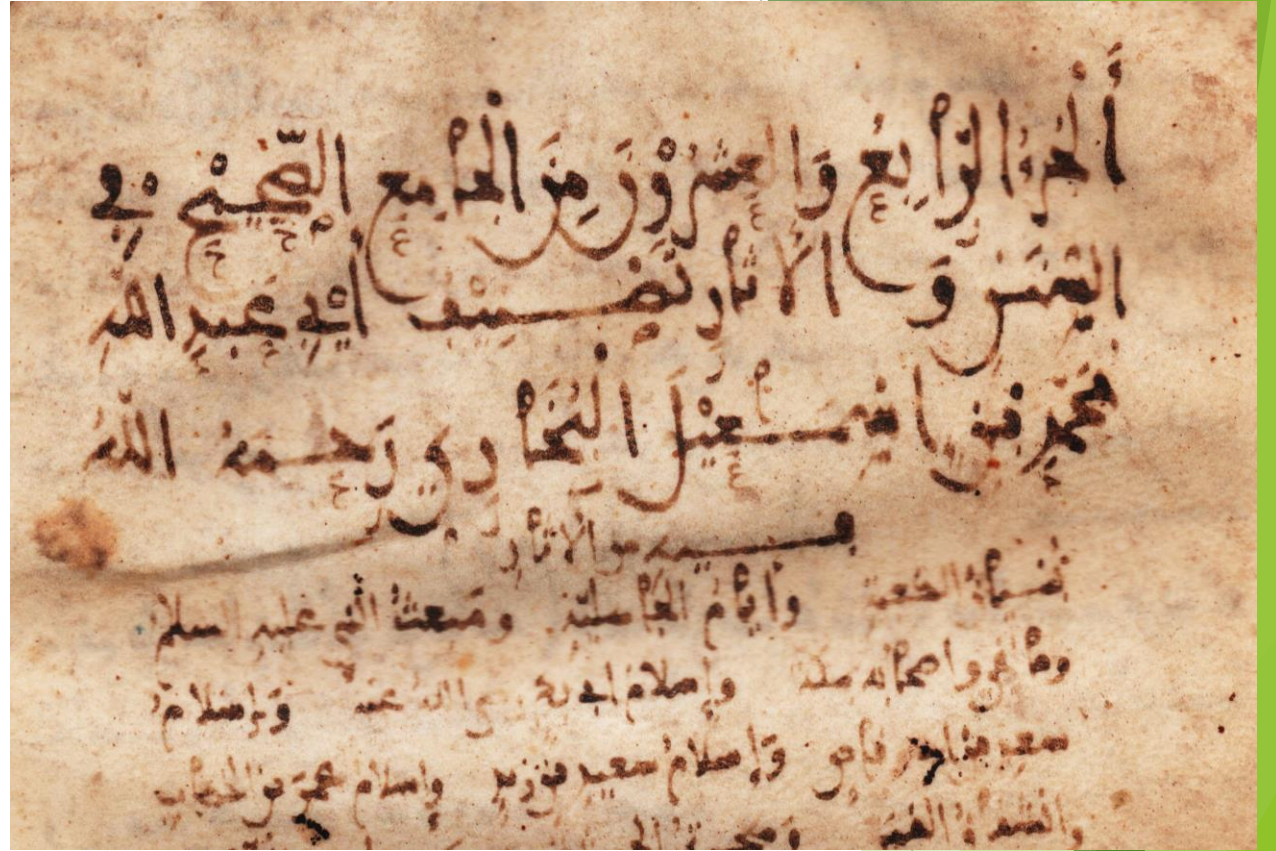 أَلْجُزْءُ الرَّابِعُ وَالعِشْرُونَ مِنَ الْجَامِعِ الصَّحِيحِ فِي
السُّنَنِ وَالأثَارِ تَصْنِيفُ أَبِي عَبْدِ اللهِ
مُحَمَّدِ بْنِ إِسْمَعِيلَ الْبُخَارِيِّ رَحِمَهُ اللهُ
فيه من الآثار
وأيام الجاهلية ومبعث النبي عليه السلام
وما لقي وأصحابه بمكة وإسلام أبي بكر رضي الله عنه وإسلام
سعد بن أبي وقاص وإسلام سعيد بن زيد وإسلام عمر بن الخطاب
وانشقاق القمر